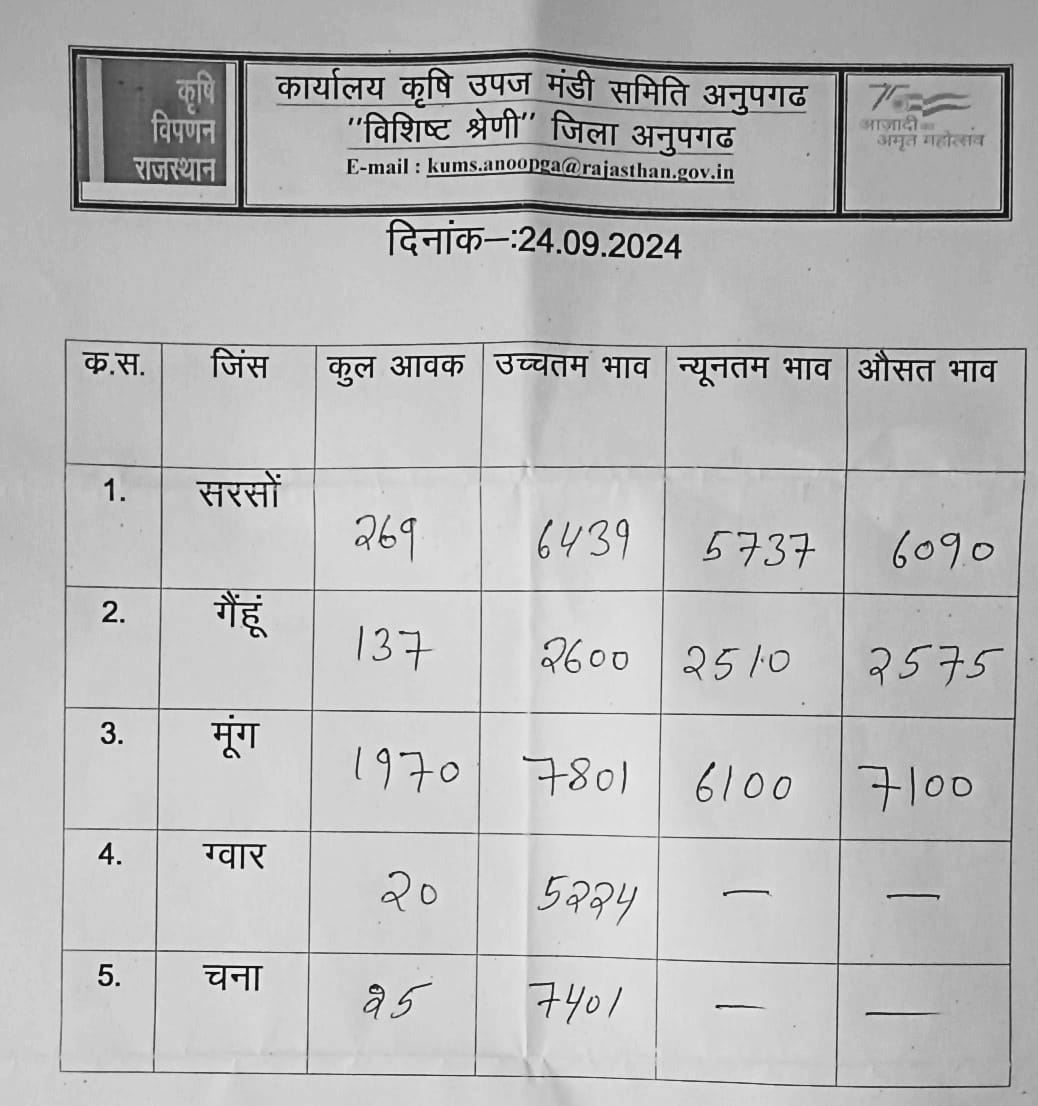 कृषि
विपणन
राजस्थान
कार्यालय कृषि उपज मंडी समिति अनुपगढ
"विशिष्ट श्रेणी" जिला अनुपगढ
E-mail : kums.anoopga@rajasthan.gov.in
आज़ादी का
अमृत महोत्सव
दिनांक–:24.09.2024
क.स. जिंस कुल आवक उच्चतम भाव न्यूनतम भाव औसत भाव
1. सरसों 269 6439 5737 6090
2. गैंहूं 137 2600 2510 2575
3. मूंग 1970 7801 6100 7100
4. ग्वार 20 5224 — —
5. चना 25 7401 — —